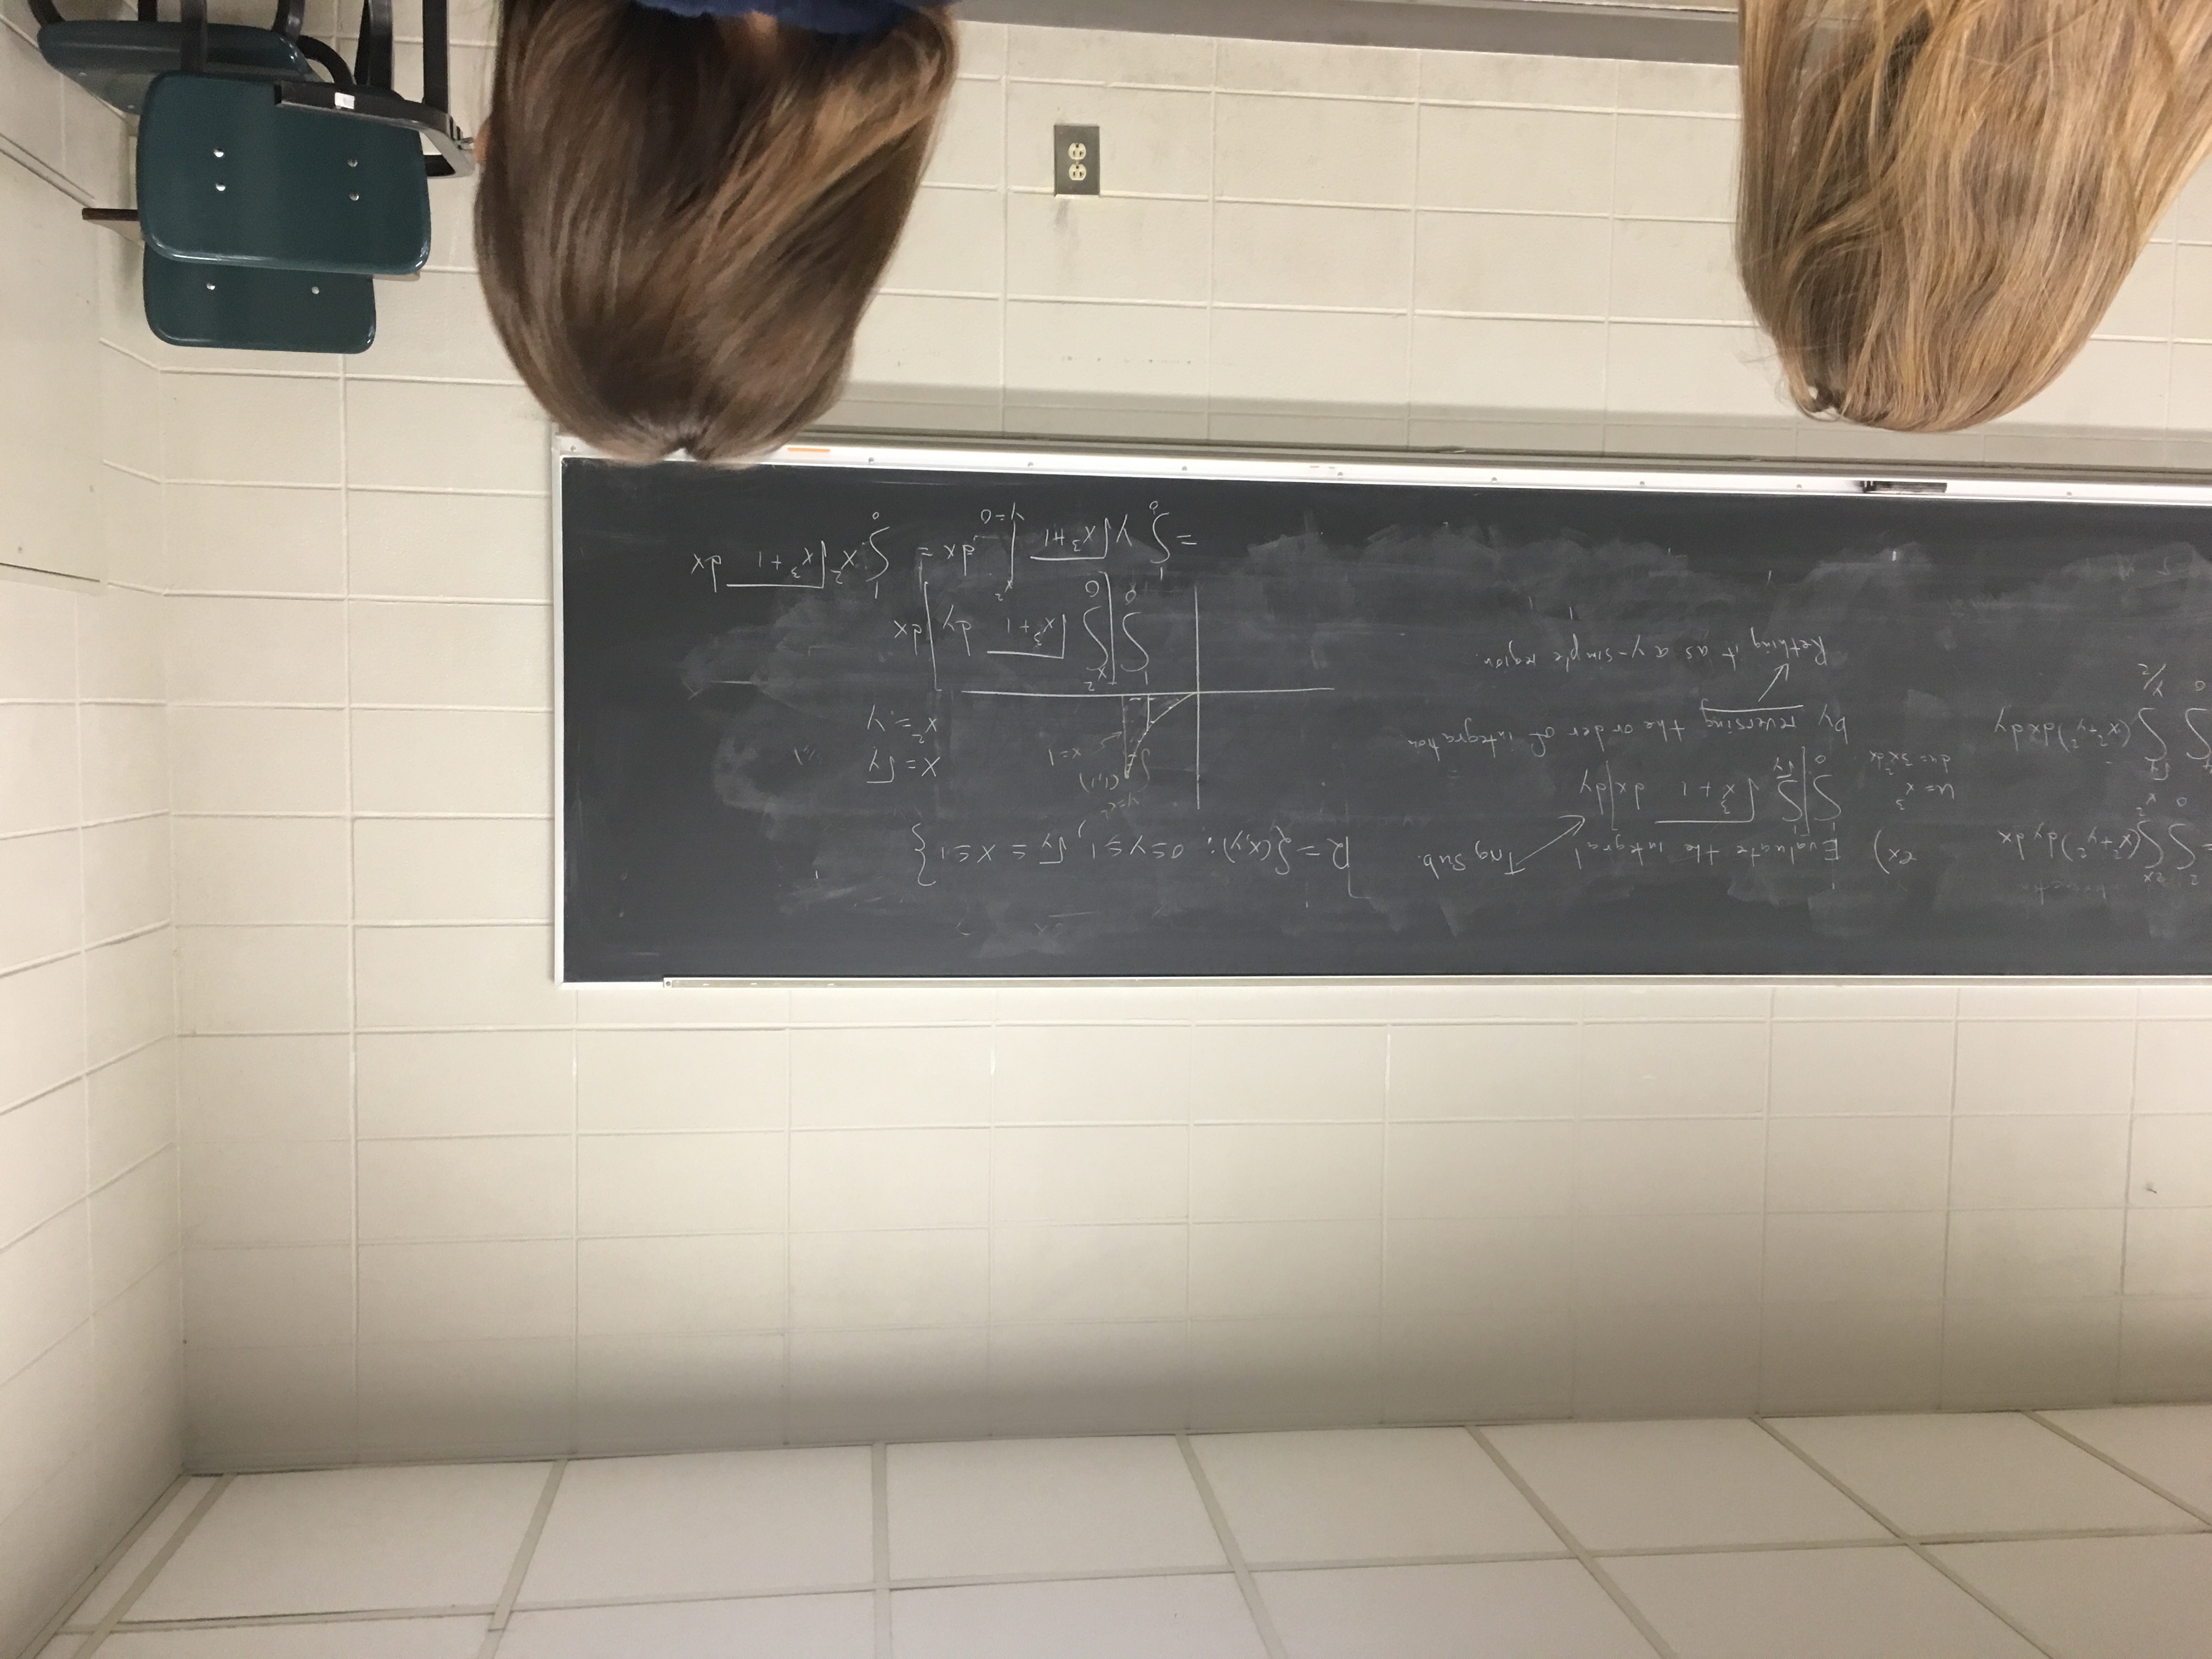 = ∫₀² ∫_{x²}^{2x} (x²+y²) dy dx
∫₀⁴ ∫_{y/2}^{√y} (x²+y²) dx dy
ex) Evaluate the integral
Tng sub.
∫₀¹ [ ∫_{√y}^{1} √(x³+1) dx ] dy
u = x³
du = 3x² dx
by reversing the order of integration
Rething it as a y-simple region.
R = {(x,y): 0 ≤ y ≤ 1, √y ≤ x ≤ 1}
y=x²
(1,1)
x=1
x = √y
x² = y
∫₀¹ [ ∫₀^{x²} √(x³+1) dy ] dx
= ∫₀¹ y√(x³+1) |_{y=0}^{x²} dx = ∫₀¹ x²√(x³+1) dx